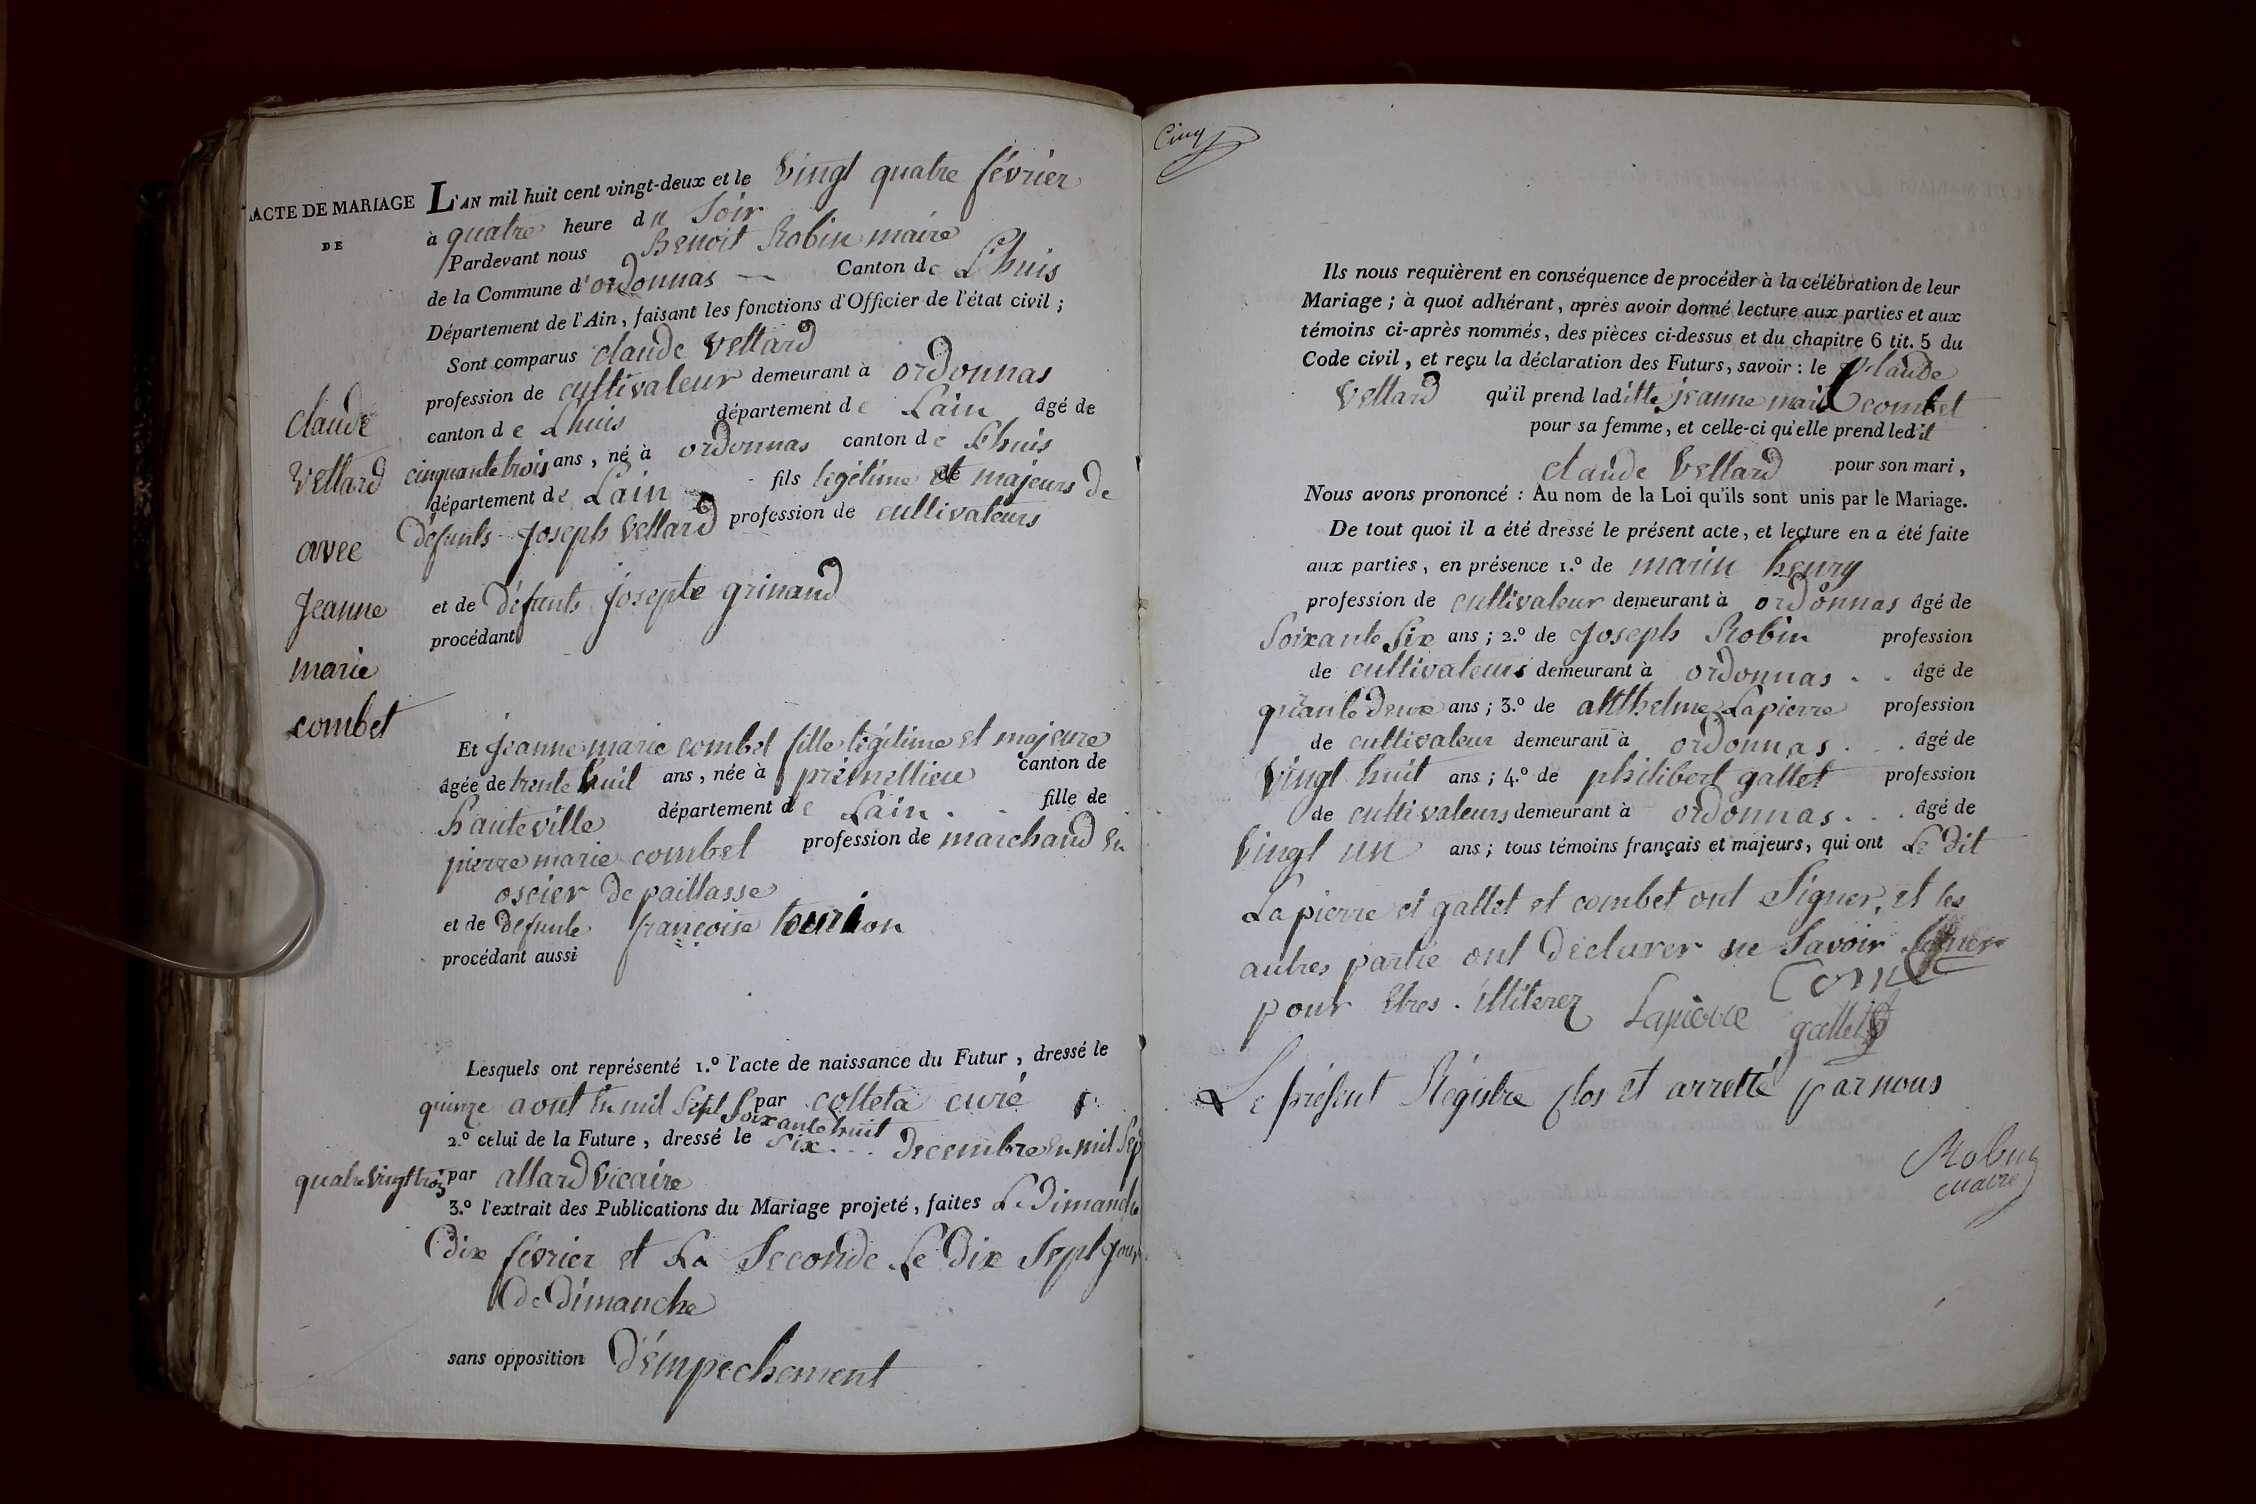 ACTE DE MARIAGE
DE
claude
Vettard
avec
Jeanne
marie
combet
L'AN mil huit cent vingt-deux et le Vingt quatre février
à quatre heure du Soir
Pardevant nous Benoit Robin maire
de la Commune d'ordonnas Canton de Lhuis
Département de l'Ain, faisant les fonctions d'Officier de l'état civil;
Sont comparus claude Vettard
profession de cultivateur demeurant à ordonnas
canton de Lhuis département de Lain âgé de
cinquante trois ans, né à ordonnas canton de Lhuis
département de Lain fils legitime et majeurs de
défunts Joseph Vettard profession de cultivateurs
et de défunts josepte grinand
procédant
Et Jeanne marie combet fille légitime et majeure
âgée de trente huit ans, née à prémellieu canton de
hauteville département de Lain fille de
pierre marie combet profession de marchand En
oscier de paillasse
et de defunte françoise
procédant aussi
Lesquels ont représenté 1.º l'acte de naissance du Futur, dressé le
quinze aout En mil Sept Soixante huit par colleta curé
2.º celui de la Future, dressé le Six decembre En mil Sep
quatre Vingt trois par allard Vicaire
3.º l'extrait des Publications du Mariage projeté, faites Le Dimanche
dix février et La Seconde Le Dix Sept jour
de Dimanche
sans opposition D'émpechement
Cinq
Ils nous requièrent en conséquence de procéder à la célébration de leur
Mariage; à quoi adhérant, après avoir donné lecture aux parties et aux
témoins ci-après nommés, des pièces ci-dessus et du chapitre 6 tit. 5 du
Code civil, et reçu la déclaration des Futurs, savoir: le Claude
Vettard qu'il prend laditte jeanne marie combet
pour sa femme, et celle-ci qu'elle prend ledit
claude Vettard pour son mari,
Nous avons prononcé: Au nom de la Loi qu'ils sont unis par le Mariage.
De tout quoi il a été dressé le présent acte, et lecture en a été faite
aux parties, en présence 1.º de marin henry
profession de cultivateur demeurant à ordonnas âgé de
Soixante Six ans; 2.º de Joseph Robin profession
de cultivateurs demeurant à ordonnas âgé de
quante deux ans; 3.º de anthelme Lapierre profession
de cultivateur demeurant à ordonnas âgé de
Vingt huit ans; 4.º de philibert gallet profession
de cultivateurs demeurant à ordonnas âgé de
Vingt un ans; tous témoins français et majeurs, qui ont Le dit
Lapierre et gallet et combet ont Signer, et les
autres partie ont déclarer ne Savoir Signer
pour Etres illiterez Lapierre gallet
Le présent Régistre clos et arretté par nous
Robin
maire